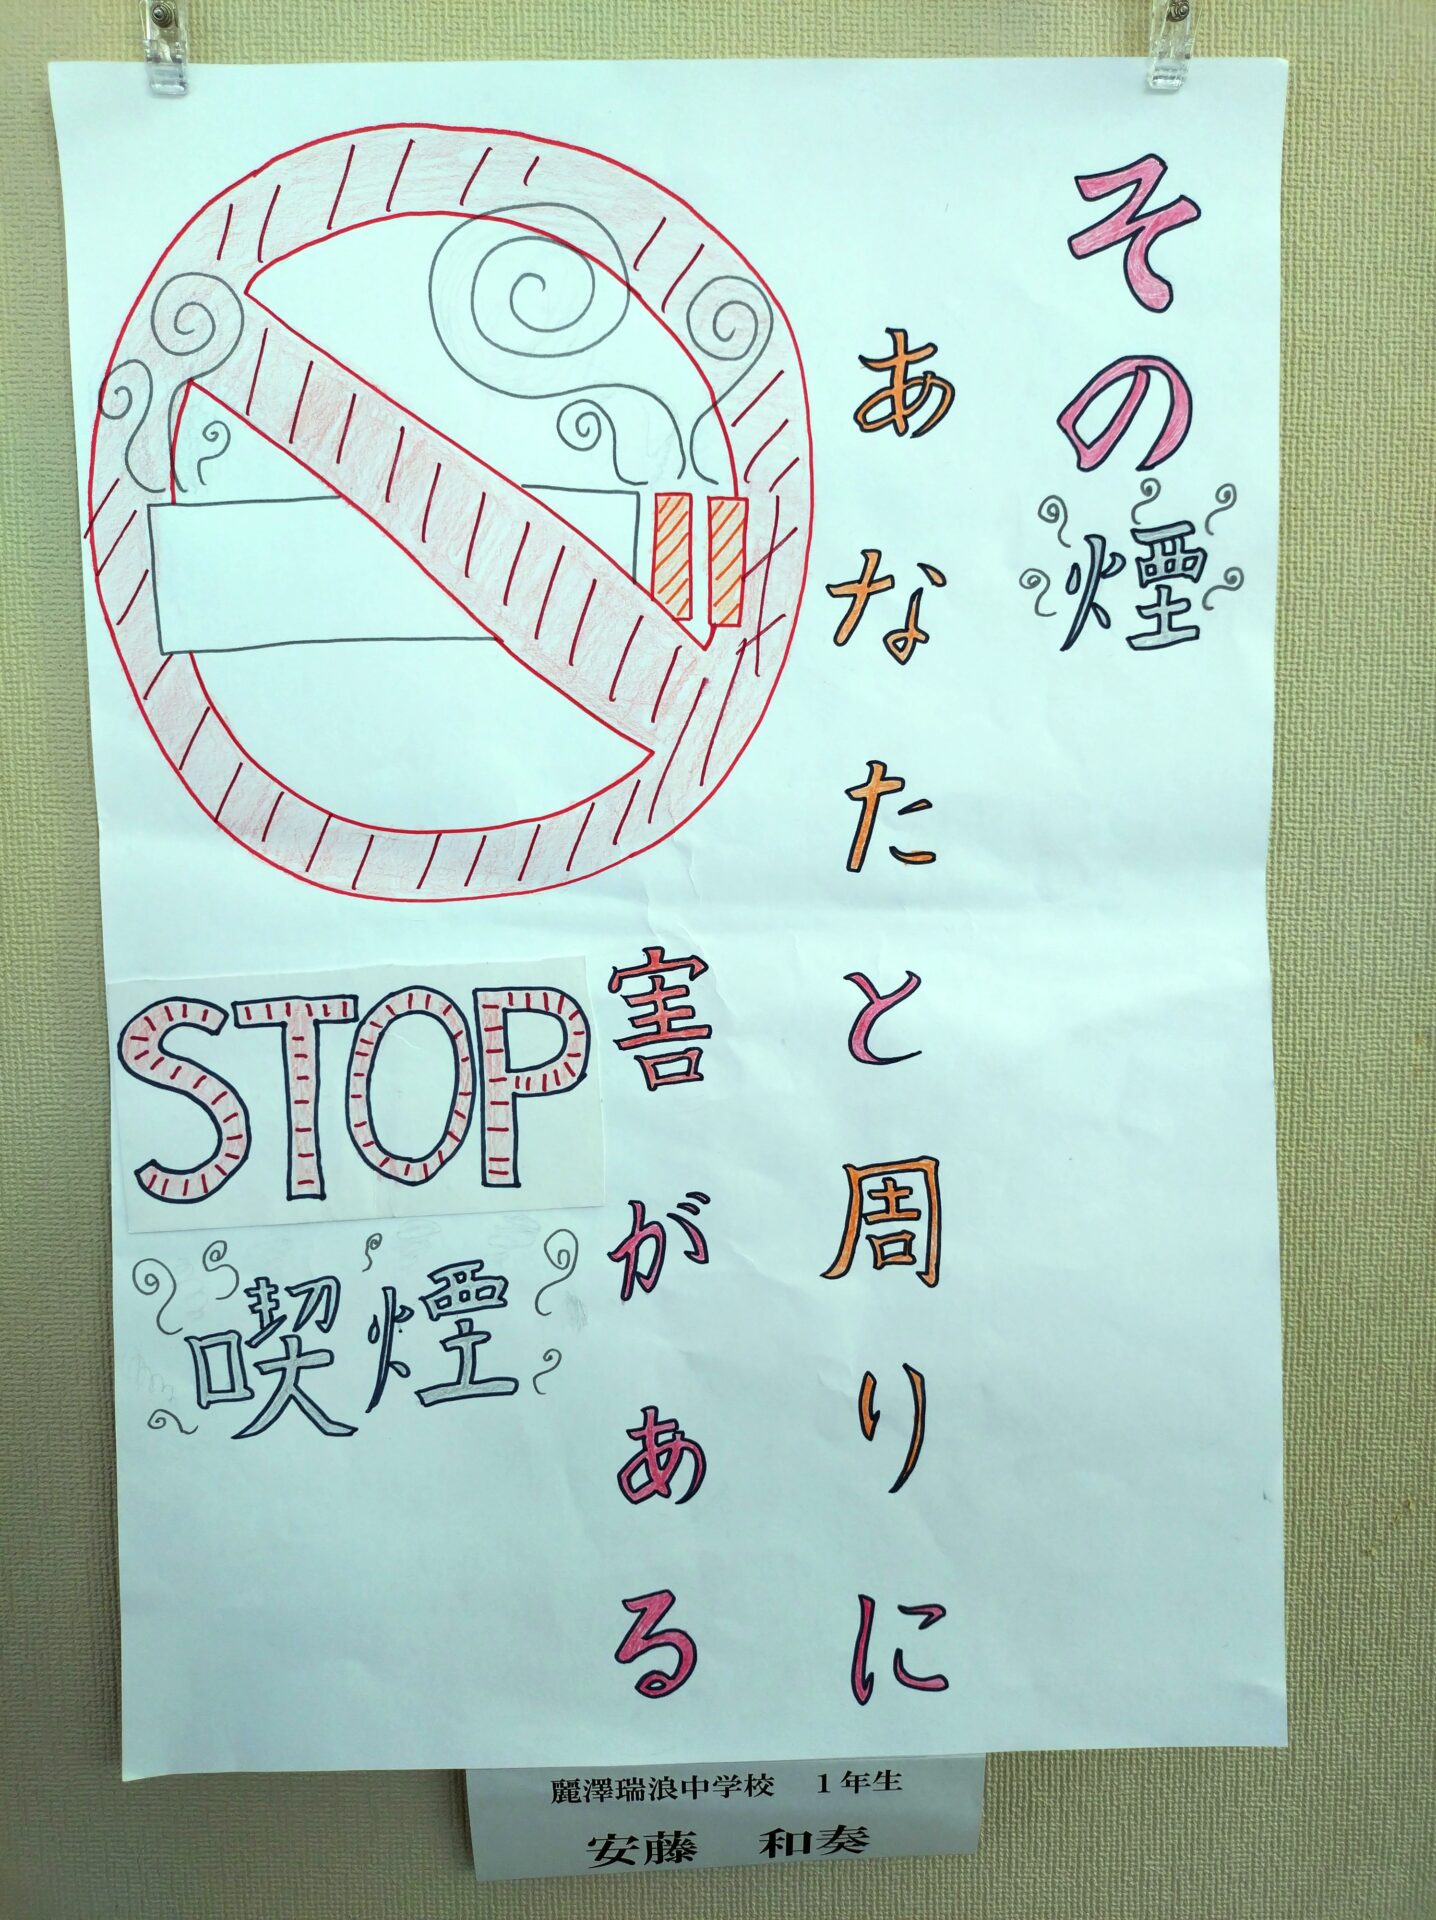 その煙
あなたと周りに
害がある
STOP
喫煙
麗澤瑞浪中学校　１年生
安藤　和奏